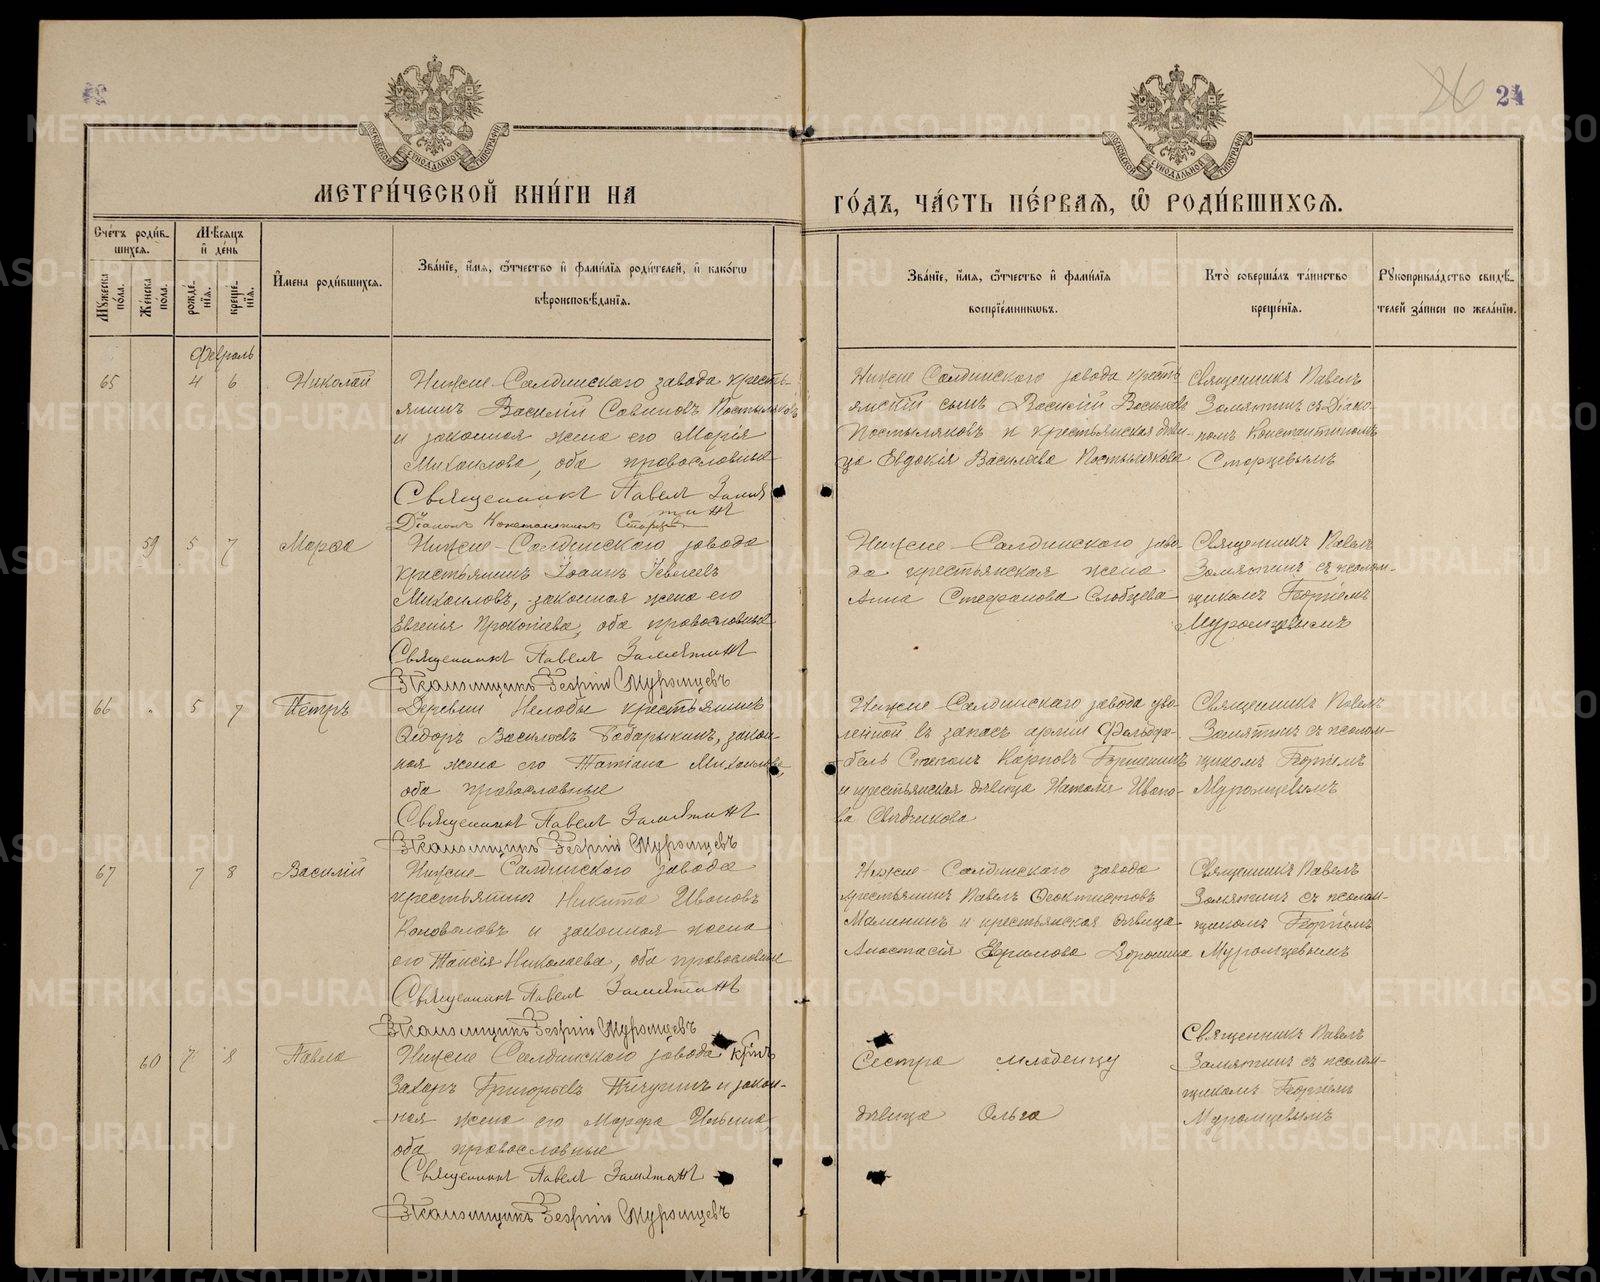 26
24
МОСКОВСКОЙ СИНОДАЛЬНОЙ ТИПОГРАФІИ
МОСКОВСКОЙ СИНОДАЛЬНОЙ ТИПОГРАФІИ
МЕТРИ́ЧЕСКОЙ КНИ́ГИ НА
ГО́ДЪ, ЧА́СТЬ ПЕ́РВАѦ, Ѡ РОДИ́ВШИХСѦ.
Сче́тъ роди́в-
шихсѧ.
Мꙋ́жеска по́ла.
Же́нска по́ла.
Мѣ́сѧцъ
и де́нь
рожде́-
нїѧ.
креще́-
нїѧ.
И҆мена роди́вшихсѧ.
Зва́нїе, и҆́мѧ, ѻ҆́тчество и҆ фами́лїѧ роди́телей, и҆ како́гѡ
вѣроисповѣ́данїѧ.
Зва́нїе, и҆́мѧ, ѻ҆́тчество и҆ фами́лїѧ
воспрїе́мникѡвъ.
Кто̀ соверша́лъ та́инство
креще́нїѧ.
Рꙋкоприкла́дство свидѣ́-
телей за́писи по жела́нїю.
Февраль
65 4 6 Николай
Нижне-Салдинскаго завода кресть-
янинъ Василій Савиновъ Постыляковъ
и законная жена его Марія
Михаилова, оба православные
Священникъ Павелъ Замя
тинъ
Діаконъ Константинъ Старцевъ
Нижне Салдинскаго завода кресть
янскій сынъ Василій Васильевъ
Постыляковъ и крестьянская дѣви-
ца Евдокія Васильева Постылякова
Священникъ Павелъ
Замятинъ съ Діако-
номъ Константиномъ
Старцевымъ
59 5 7 Марѳа
Нижне-Салдинскаго завода
крестьянинъ Іоаннъ
Михаиловъ, законная жена его
Евгенья Прокопіева, оба православные
Священникъ Павелъ Замятинъ
Псаломщикъ Георгій Муромцевъ
Нижне-Салдинскаго заво-
да крестьянская жена
Анна Стефанова Слобцева
Священникъ Павелъ
Замятинъ съ псалом-
щикомъ Георгіемъ
Муромцевымъ
66 5 7 Петръ
Деревни Нелобы крестьянинъ
Ѳедоръ Васильевъ Бабарыкинъ, закон-
ная жена его Татіана Михаилова,
оба православные
Священникъ Павелъ Замятинъ
Псаломщикъ Георгій Муромцевъ
Нижне-Салдинскаго завода ува-
ленной въ запасъ арміи Фельдфе-
бель Степанъ Карповъ
и крестьянская дѣвица Наталія Ивано-
ва
Священникъ Павелъ
Замятинъ съ псалом-
щикомъ Георгіемъ
Муромцевымъ
67 7 8 Василій
Нижне-Салдинскаго завода
крестьянинъ Никита Ивановъ
Коноваловъ и законная жена
его Таисія Николаева, оба православные
Священникъ Павелъ Замятинъ
Псаломщикъ Георгій Муромцевъ
Нижне-Салдинскаго завода
крестьянинъ Павелъ Ѳеоктистовъ
Маленинъ и крестьянская дѣвица
Анастасія Ефимова Воронина
Священникъ Павелъ
Замятинъ съ псалом-
щикомъ Георгіемъ
Муромцевымъ
60 7 8 Павла
Нижне Салдинскаго завода крнъ
Захаръ Григорьевъ Пичугинъ и закон-
ная жена его Марѳа Ильина,
оба православные
Священникъ Павелъ Замятинъ
Псаломщикъ Георгій Муромцевъ
Сестра младенцу
дѣвица Ольга
Священникъ Павелъ
Замятинъ съ псалом-
щикомъ Георгіемъ
Муромцевымъ
METRIKI.GASO-URAL.RU